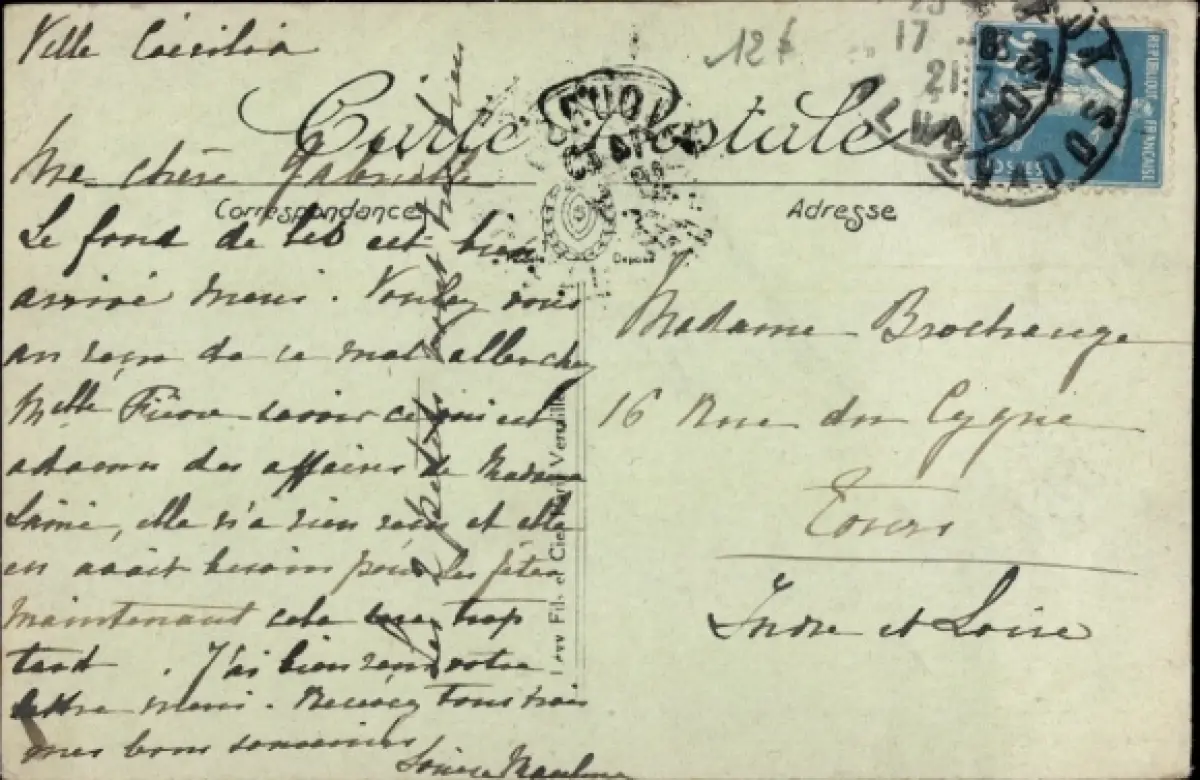 Ville Cecilia
12f
17
Carte Postale
REPUBLIQUE FRANÇAISE
POSTES
CALVADOS
Correspondance
Adresse
Ma chère Gabrielle
Le fond de lit est bien
arrivé merci. Voulez vous
au reçu de ce mot aller chez
Melle savoir ce qui est
des affaires de Madame
elle n'a rien reçu et elle
en avait besoin pour les fêtes
maintenant cela sera trop
tard. J'ai bien reçu votre
lettre merci. Recevez tous trois
mes bons souvenirs
Louise
Madame Brochange
16 Rue du Cygne
Tours
Indre et Loire
Levy Fils et Cie, Paris Versailles